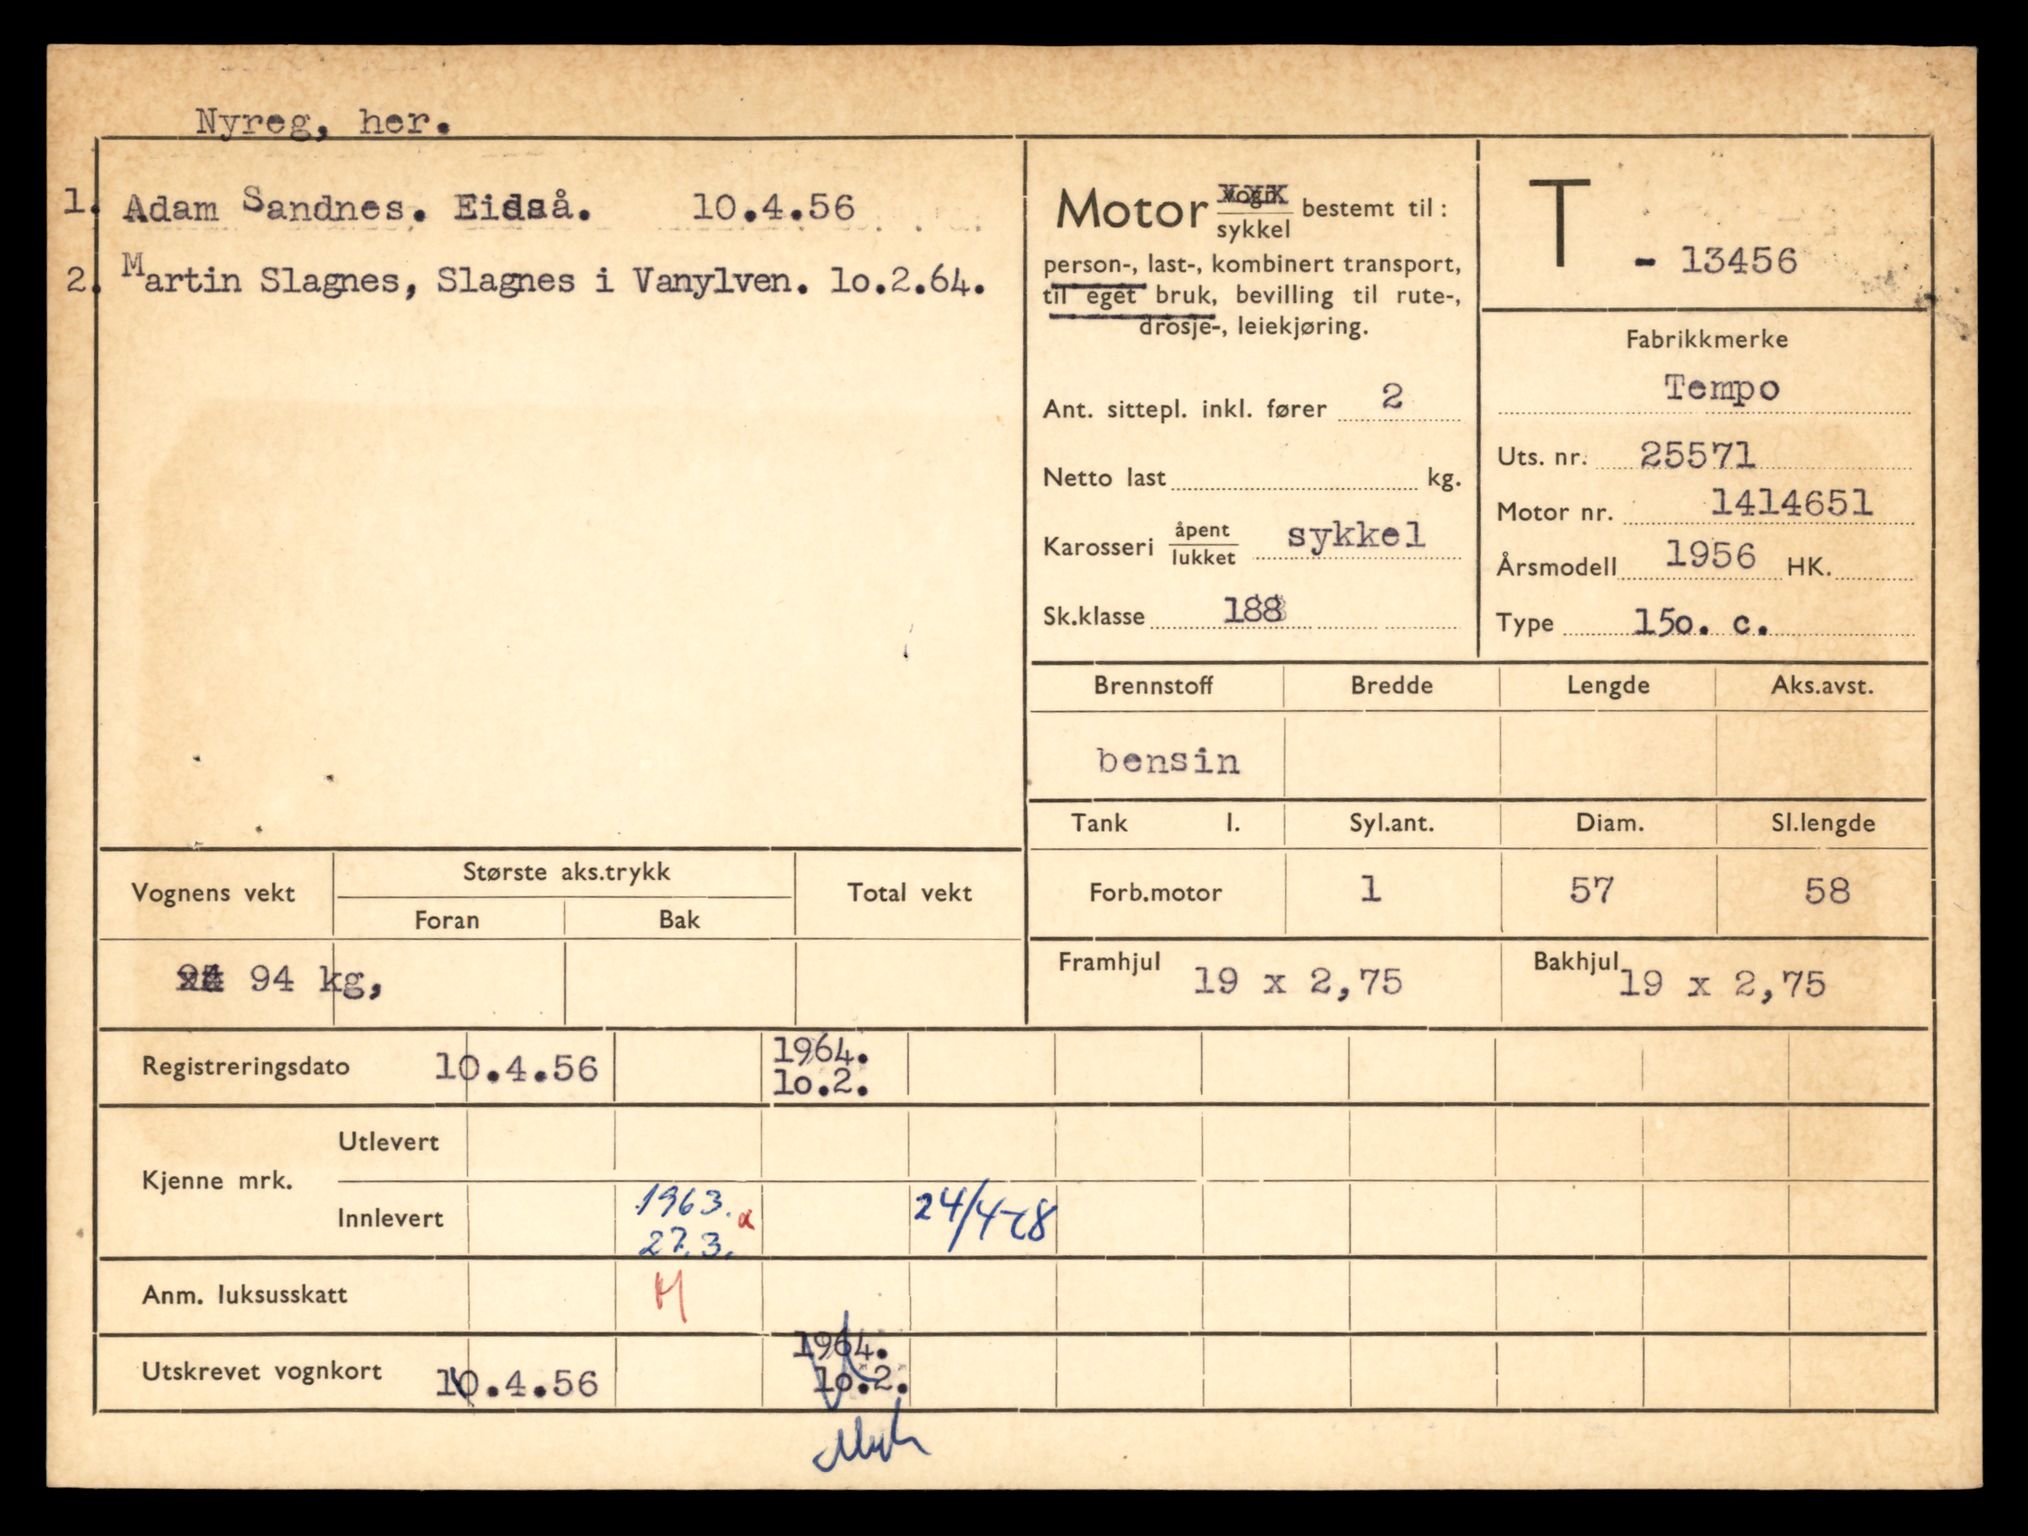 Nyreg, her.
1. Adam Sandnes. Eidså. 10.4.56
2. Martin Slagnes, Slagnes i Vanylven. lo.2.64.
Motor vogn
sykkel bestemt til:
person-, last-, kombinert transport,
til eget bruk, bevilling til rute-,
drosje-, leiekjøring.
Ant. sittepl. inkl. fører 2
Netto last kg.
Karosseri åpent
lukket sykkel
Sk.klasse 188
T - 13456
Fabrikkmerke
Tempo
Uts. nr. 25571
Motor nr. 1414651
Årsmodell 1956 HK.
Type 15o. c.
Brennstoff Bredde Lengde Aks.avst.
bensin
Tank l. Syl.ant. Diam. Sl.lengde
Forb.motor 1 57 58
Framhjul 19 x 2,75 Bakhjul 19 x 2,75
Vognens vekt Største aks.trykk Total vekt
Foran Bak
94 kg,
Registreringsdato 10.4.56 1964.
lo.2.
Kjenne mrk. Utlevert
Innlevert 1963. 24/4-78
27.3.
Anm. luksusskatt M
Utskrevet vognkort 10.4.56 1964.
lo.2.